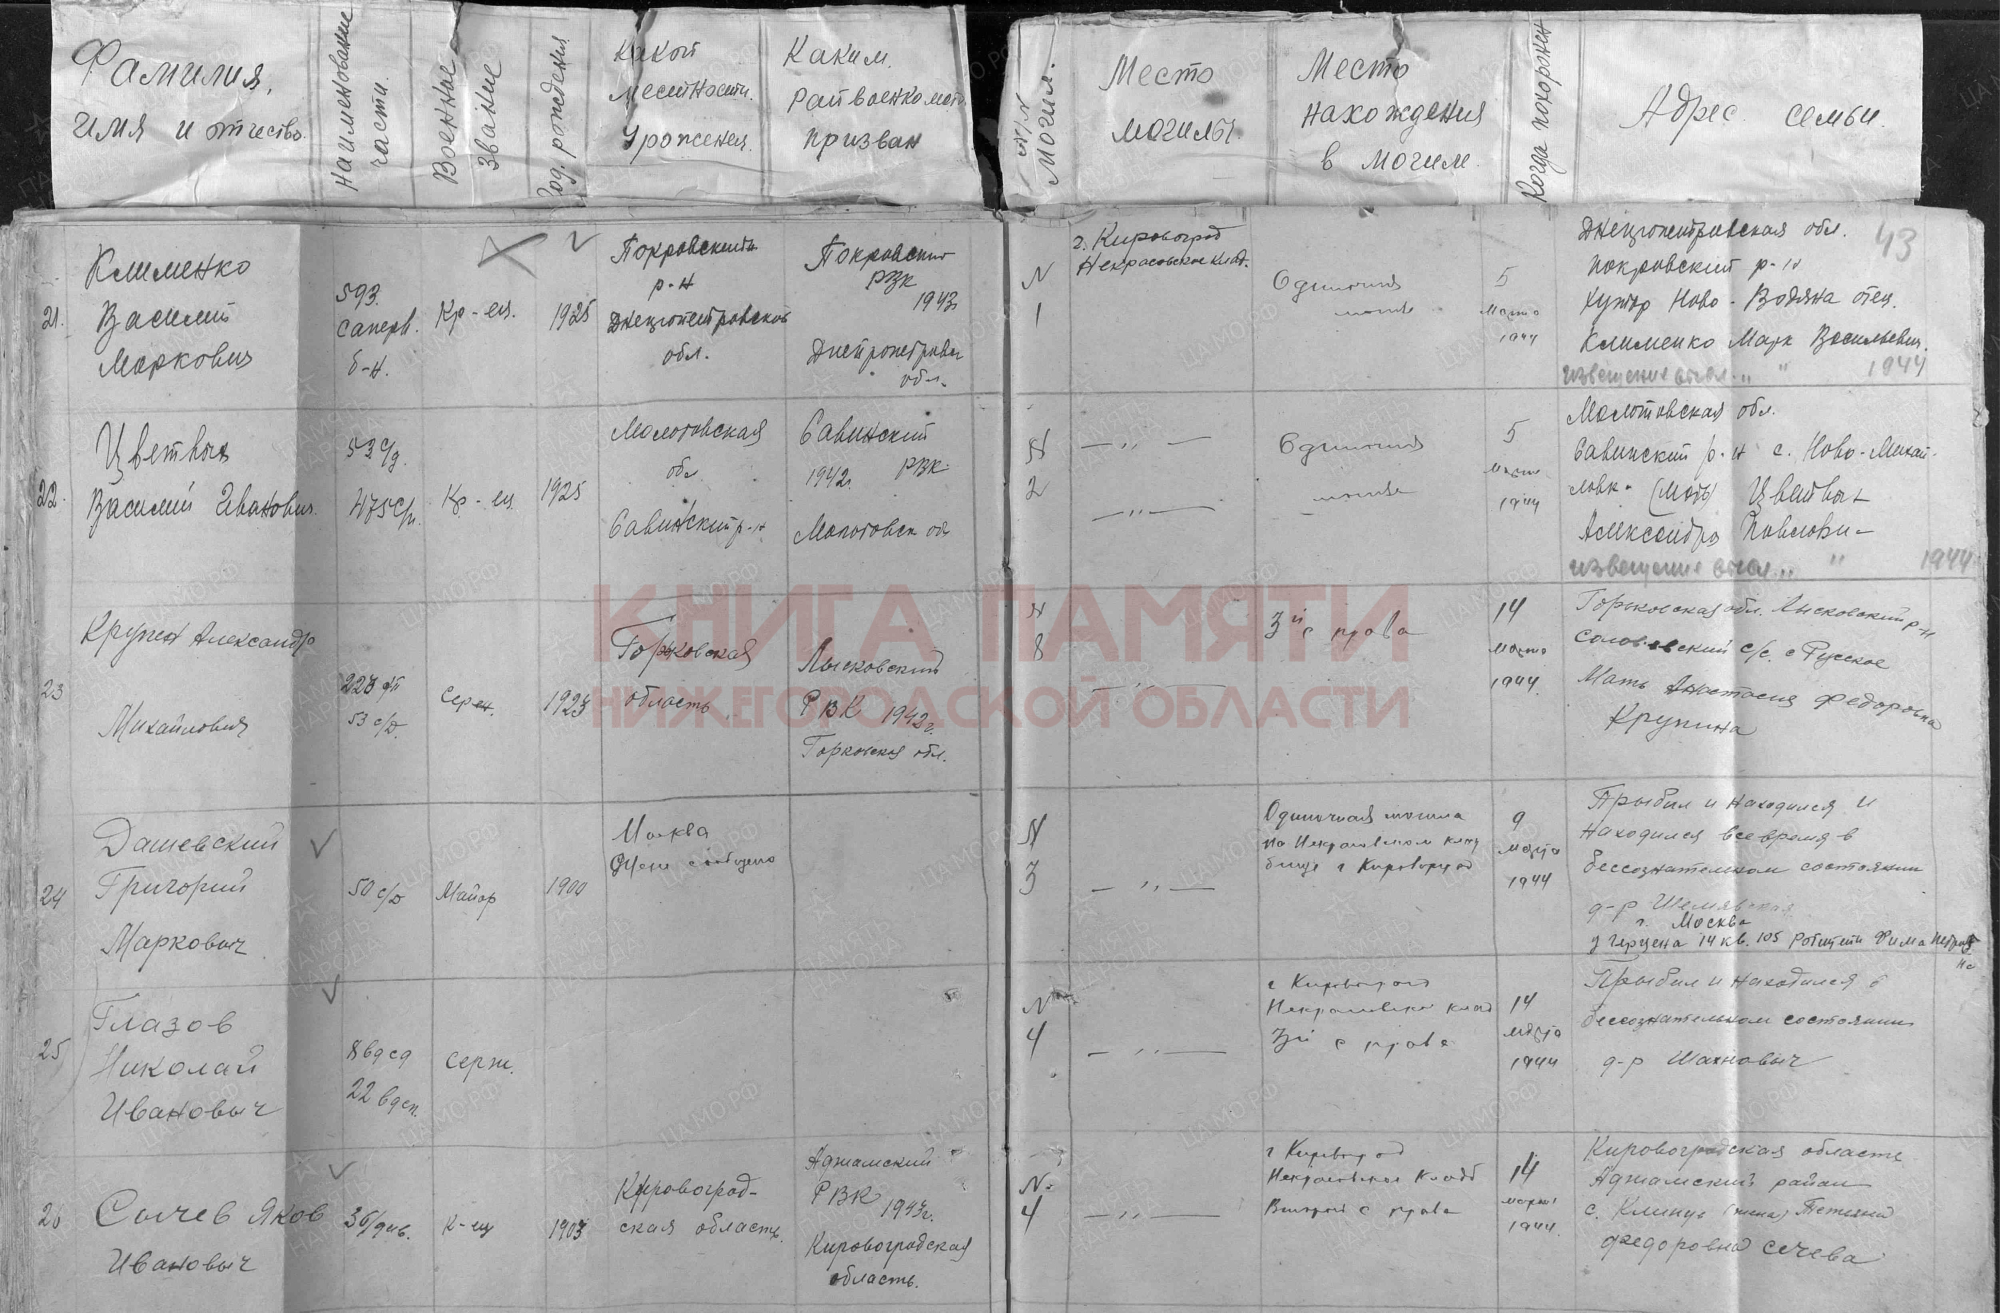 Фамилия,
имя и отчество.
Наименование
части.
Военные
звание
Год рождения
какой
месітности.
Урожения.
Каким.
Райвоенкомат.
призван
№/№
могил.
Место
могилы.
Место
нахождения
в могиле.
Когда похоронен
Адрес семьи.
43
21.
Клименко
Василий
Маркович
593.
саперн.
б-н.
Кр-ец.
1925
Покровский
р-н
Днепропетровской
обл.
Покровский
РВК
1943г
Днепропетровск
обл.
N
1
г. Кировоград
Некрасовское клад.
Одиночная
могила
5
марта
1944
Днепропетровская обл.
покровский р-н
хутор Ново-Водяна отец.
Клименко Марк Васильевич.
извещение высл. " " 1944
22.
Цветных
Василий Иванович
53 с/д.
475 с/п.
Кр-ец
1925
Молотовская
обл
Савинский р-н
Савинский
1942г. РВК
Молотовск обл
N
2
— " —
— " —
Одиночная
могила
5
марта
1944
Молотовская обл.
Савинский р-н с. Ново-Михай-
ловк- (мать) Цветных
Александра Павлови-
извещение высл. " " 1944
23
Крупин Александр
Михайлович
223 сп
53 с/д.
Серж.
1923
Горьковская
область
Лысковский
РВК 1942г.
Горковская обл.
N
8
— " —
3й с права
14
марта
1944
Горьковская обл. Лысковский р-н
Соловьевский с/с. с Русское
Мать Анастасия Федоровна
Крупина
24
Дашевский
Григорий
Маркович
50 с/д
Майор
1900
Москва
Жене сообщено
N
3
— " —
Одиночная могила
на Некрасовском клад
бище г Кировоград
9
марта
1944
Прыбыл и находился и
находился все время в
бессознательном состоянии
д-р Шемявская
г. Москва
у Герцена 14 кв. 105 Фима Петров
на
25
Глазов
Николай
Ивановыч
8 вдсд
22 вдсп.
серж.
N
4
— " —
г Кировоград
Некрасовское клад
3й с права
14
марта
1944
Прыбыл и находился в
бессознательном состоянии
д-р Шахновыч
26
Сычев Яков
Ивановыч
36/див.
К-ец
1903
Кировоград-
ская область.
Аджамский
РВК 1943г.
Кировоградская
область.
N.
4
— " —
г Кировоград
Некрасовское кладб
Второй с права
14
марта
1944.
Кировоградская область
Аджамский район
с. Клинцы (жена) Тетяна
Федоровна Сечева
КНИГА ПАМЯТИ
НИЖЕГОРОДСКОЙ ОБЛАСТИ